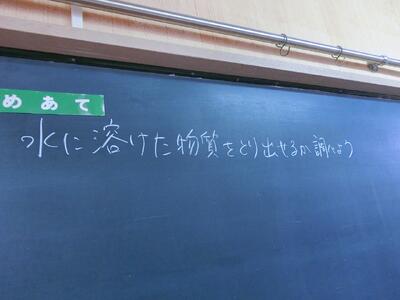 めあて
水に溶けた物質をとり出せるか調べよう